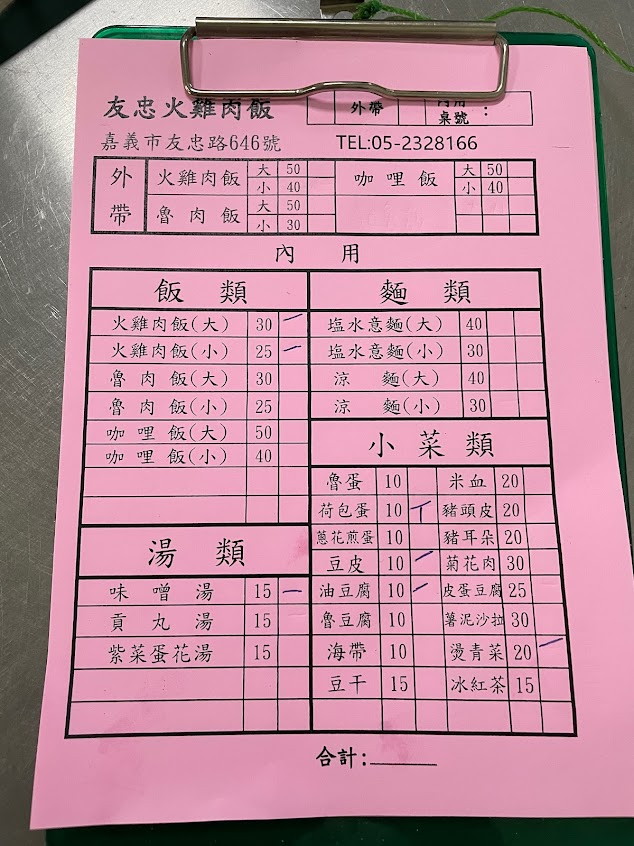 友忠火雞肉飯 外帶 內用桌號：
嘉義市友忠路646號 TEL:05-2328166
外帶
火雞肉飯 大 50
小 40
魯肉飯 大 50
小 30
咖哩飯 大 50
小 40
內用
飯類
火雞肉飯(大) 30
火雞肉飯(小) 25
魯肉飯(大) 30
魯肉飯(小) 25
咖哩飯(大) 50
咖哩飯(小) 40
湯類
味噌湯 15
貢丸湯 15
紫菜蛋花湯 15
麵類
塩水意麵(大) 40
塩水意麵(小) 30
涼麵(大) 40
涼麵(小) 30
小菜類
魯蛋 10 米血 20
荷包蛋 10 丅 豬頭皮 20
蔥花煎蛋 10 豬耳朵 20
豆皮 10 菊花肉 30
油豆腐 10 皮蛋豆腐 25
魯豆腐 10 薯泥沙拉 30
海帶 10 燙青菜 20
豆干 15 冰紅茶 15
合計: